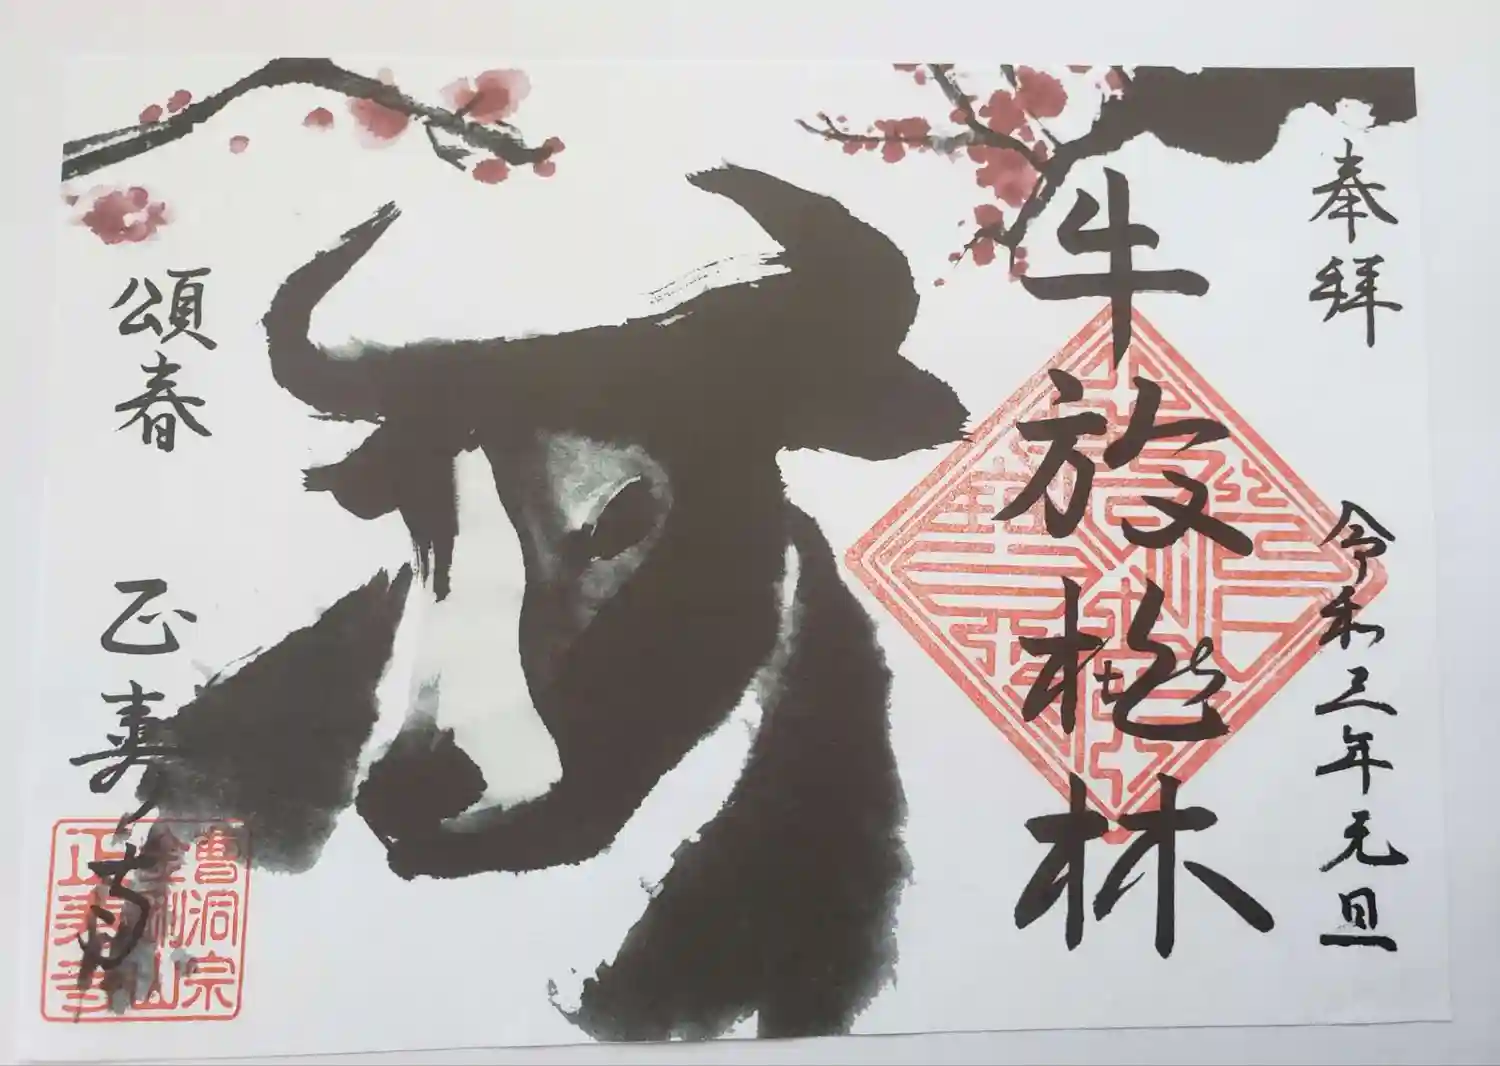 奉拝 令和三年元旦
牛放桃林
頌春
正壽寺
曹洞宗
正壽寺